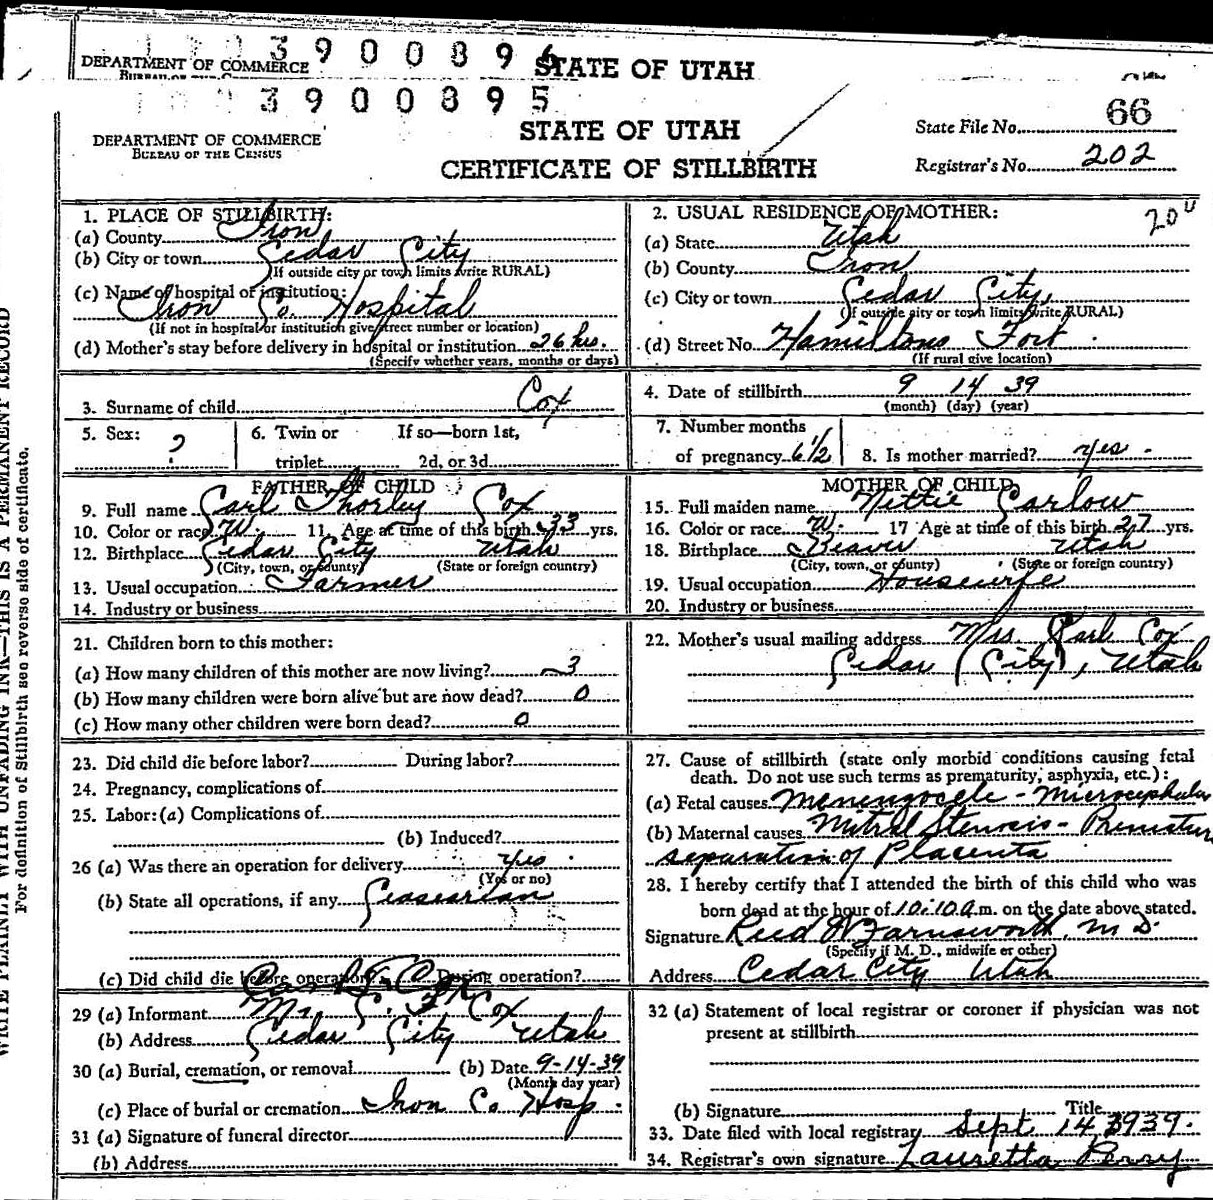 3900896
DEPARTMENT OF COMMERCE STATE OF UTAH
3900895
STATE OF UTAH
DEPARTMENT OF COMMERCE
BUREAU OF THE CENSUS
CERTIFICATE OF STILLBIRTH
State File No. 66
Registrar's No. 202
WRITE PLAINLY WITH UNFADING INK—THIS IS A PERMANENT RECORD
For definition of Stillbirth see reverse side of certificate.
1. PLACE OF STILLBIRTH:
(a) County Iron
(b) City or town Cedar City
(If outside city or town limits write RURAL)
(c) Name of hospital or institution:
Iron Co. Hospital
(If not in hospital or institution give street number or location)
(d) Mother's stay before delivery in hospital or institution 26 hrs.
(Specify whether years, months or days)
2. USUAL RESIDENCE OF MOTHER:
20
(a) State Utah
(b) County Iron
(c) City or town Cedar City
(If outside city or town limits write RURAL)
(d) Street No. Hamiltons Fort
(If rural give location)
3. Surname of child Cox
4. Date of stillbirth 9 14 39
(month) (day) (year)
5. Sex: ?
6. Twin or triplet If so—born 1st, 2d, or 3d
7. Number months of pregnancy 6 1/2
8. Is mother married? yes
FATHER OF CHILD
9. Full name Carl Thorley Cox
10. Color or race W. 11. Age at time of this birth 33 yrs.
12. Birthplace Cedar City Utah
(City, town, or county) (State or foreign country)
13. Usual occupation Farmer
14. Industry or business
MOTHER OF CHILD
15. Full maiden name Nettie Carlow
16. Color or race W. 17 Age at time of this birth 27 yrs.
18. Birthplace Beaver Utah
(City, town, or county) (State or foreign country)
19. Usual occupation Housewife
20. Industry or business
21. Children born to this mother:
(a) How many children of this mother are now living? 3
(b) How many children were born alive but are now dead? 0
(c) How many other children were born dead? 0
22. Mother's usual mailing address Mrs Carl Cox
Cedar City, Utah
23. Did child die before labor? During labor?
24. Pregnancy, complications of
25. Labor: (a) Complications of
(b) Induced?
26 (a) Was there an operation for delivery yes
(Yes or no)
(b) State all operations, if any Ceasarian
(c) Did child die before operation? During operation?
27. Cause of stillbirth (state only morbid conditions causing fetal
death. Do not use such terms as prematurity, asphyxia, etc.):
(a) Fetal causes Meningocele - Microcephalus
(b) Maternal causes Mitral Stenosis - Premature
separation of Placenta
28. I hereby certify that I attended the birth of this child who was
born dead at the hour of 10:10 a.m. on the date above stated.
Signature Reed W Farnsworth, M.D.
(Specify if M. D., midwife or other)
Address Cedar City Utah
29 (a) Informant Mr. C. T. Cox
(b) Address Cedar City Utah
30 (a) Burial, cremation, or removal (b) Date 9-14-39
(Month day year)
(c) Place of burial or cremation Iron Co. Hosp.
31 (a) Signature of funeral director
(b) Address
32 (a) Statement of local registrar or coroner if physician was not
present at stillbirth
(b) Signature Title
33. Date filed with local registrar Sept 14, 1939.
34. Registrar's own signature Lauretta Perry